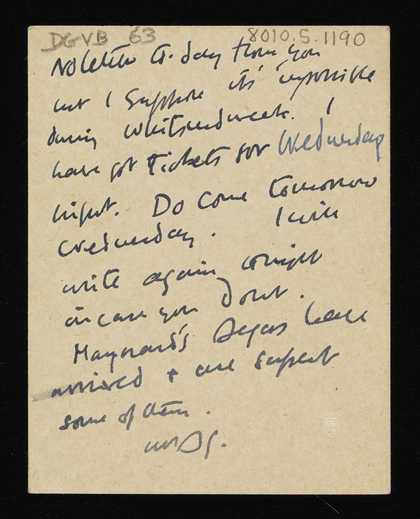 DG-VB 63
8010.5.1190
No letter to-day from you
but I suppose it's impossible
during Whitsun week. I
have got tickets for Wednesday
night. Do come tomorrow
Wednesday. I will
write again tonight
in case you don't.
Maynard's Degas have
arrived + are superb
some of them.
DG.